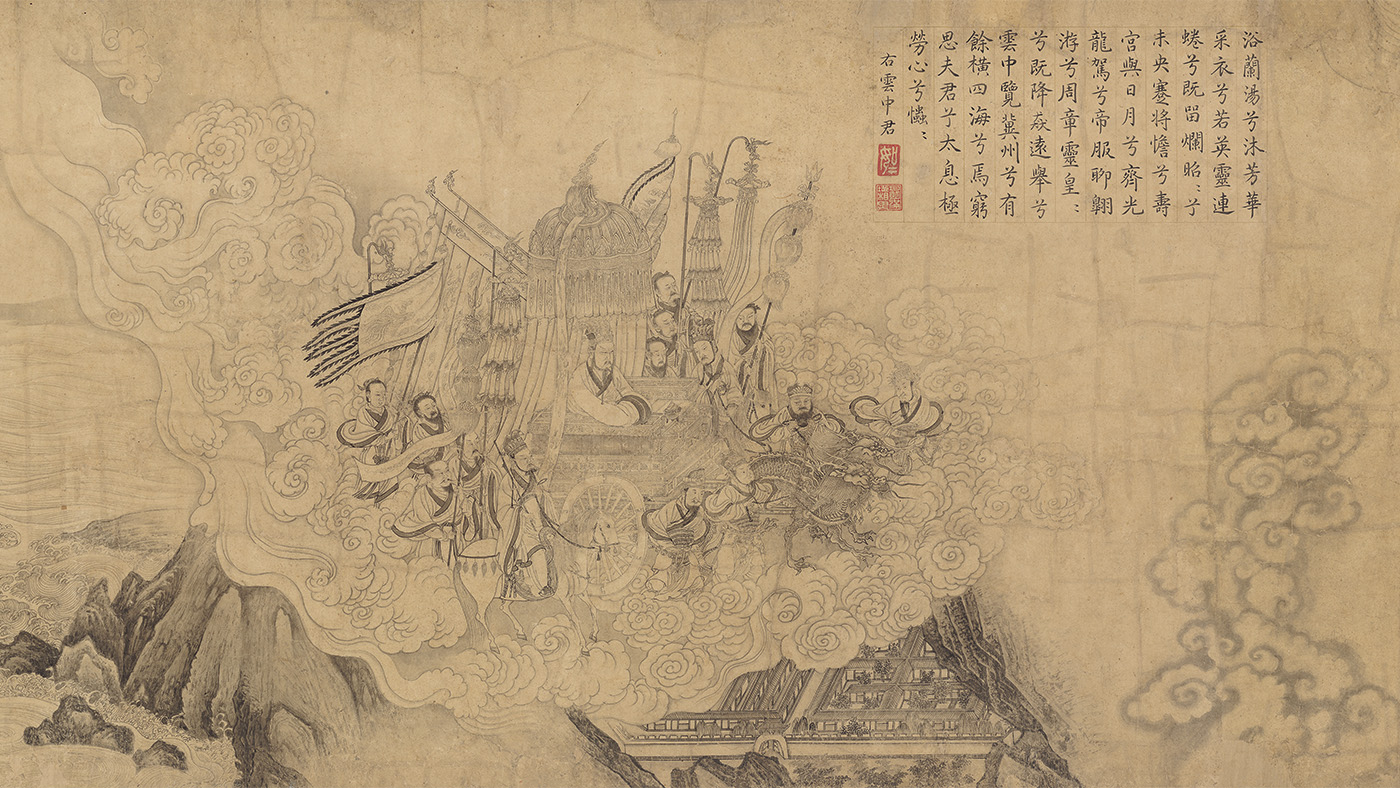 浴蘭湯兮沐芳華
采衣兮若英靈連
蜷兮既留爛昭〻兮
未央蹇將憺兮壽
宮與日月兮齊光
龍駕兮帝服聊翱
游兮周章靈皇〻
兮既降猋遠舉兮
雲中覽冀州兮有
餘橫四海兮焉窮
思夫君兮太息極
勞心兮㤝〻
右雲中君